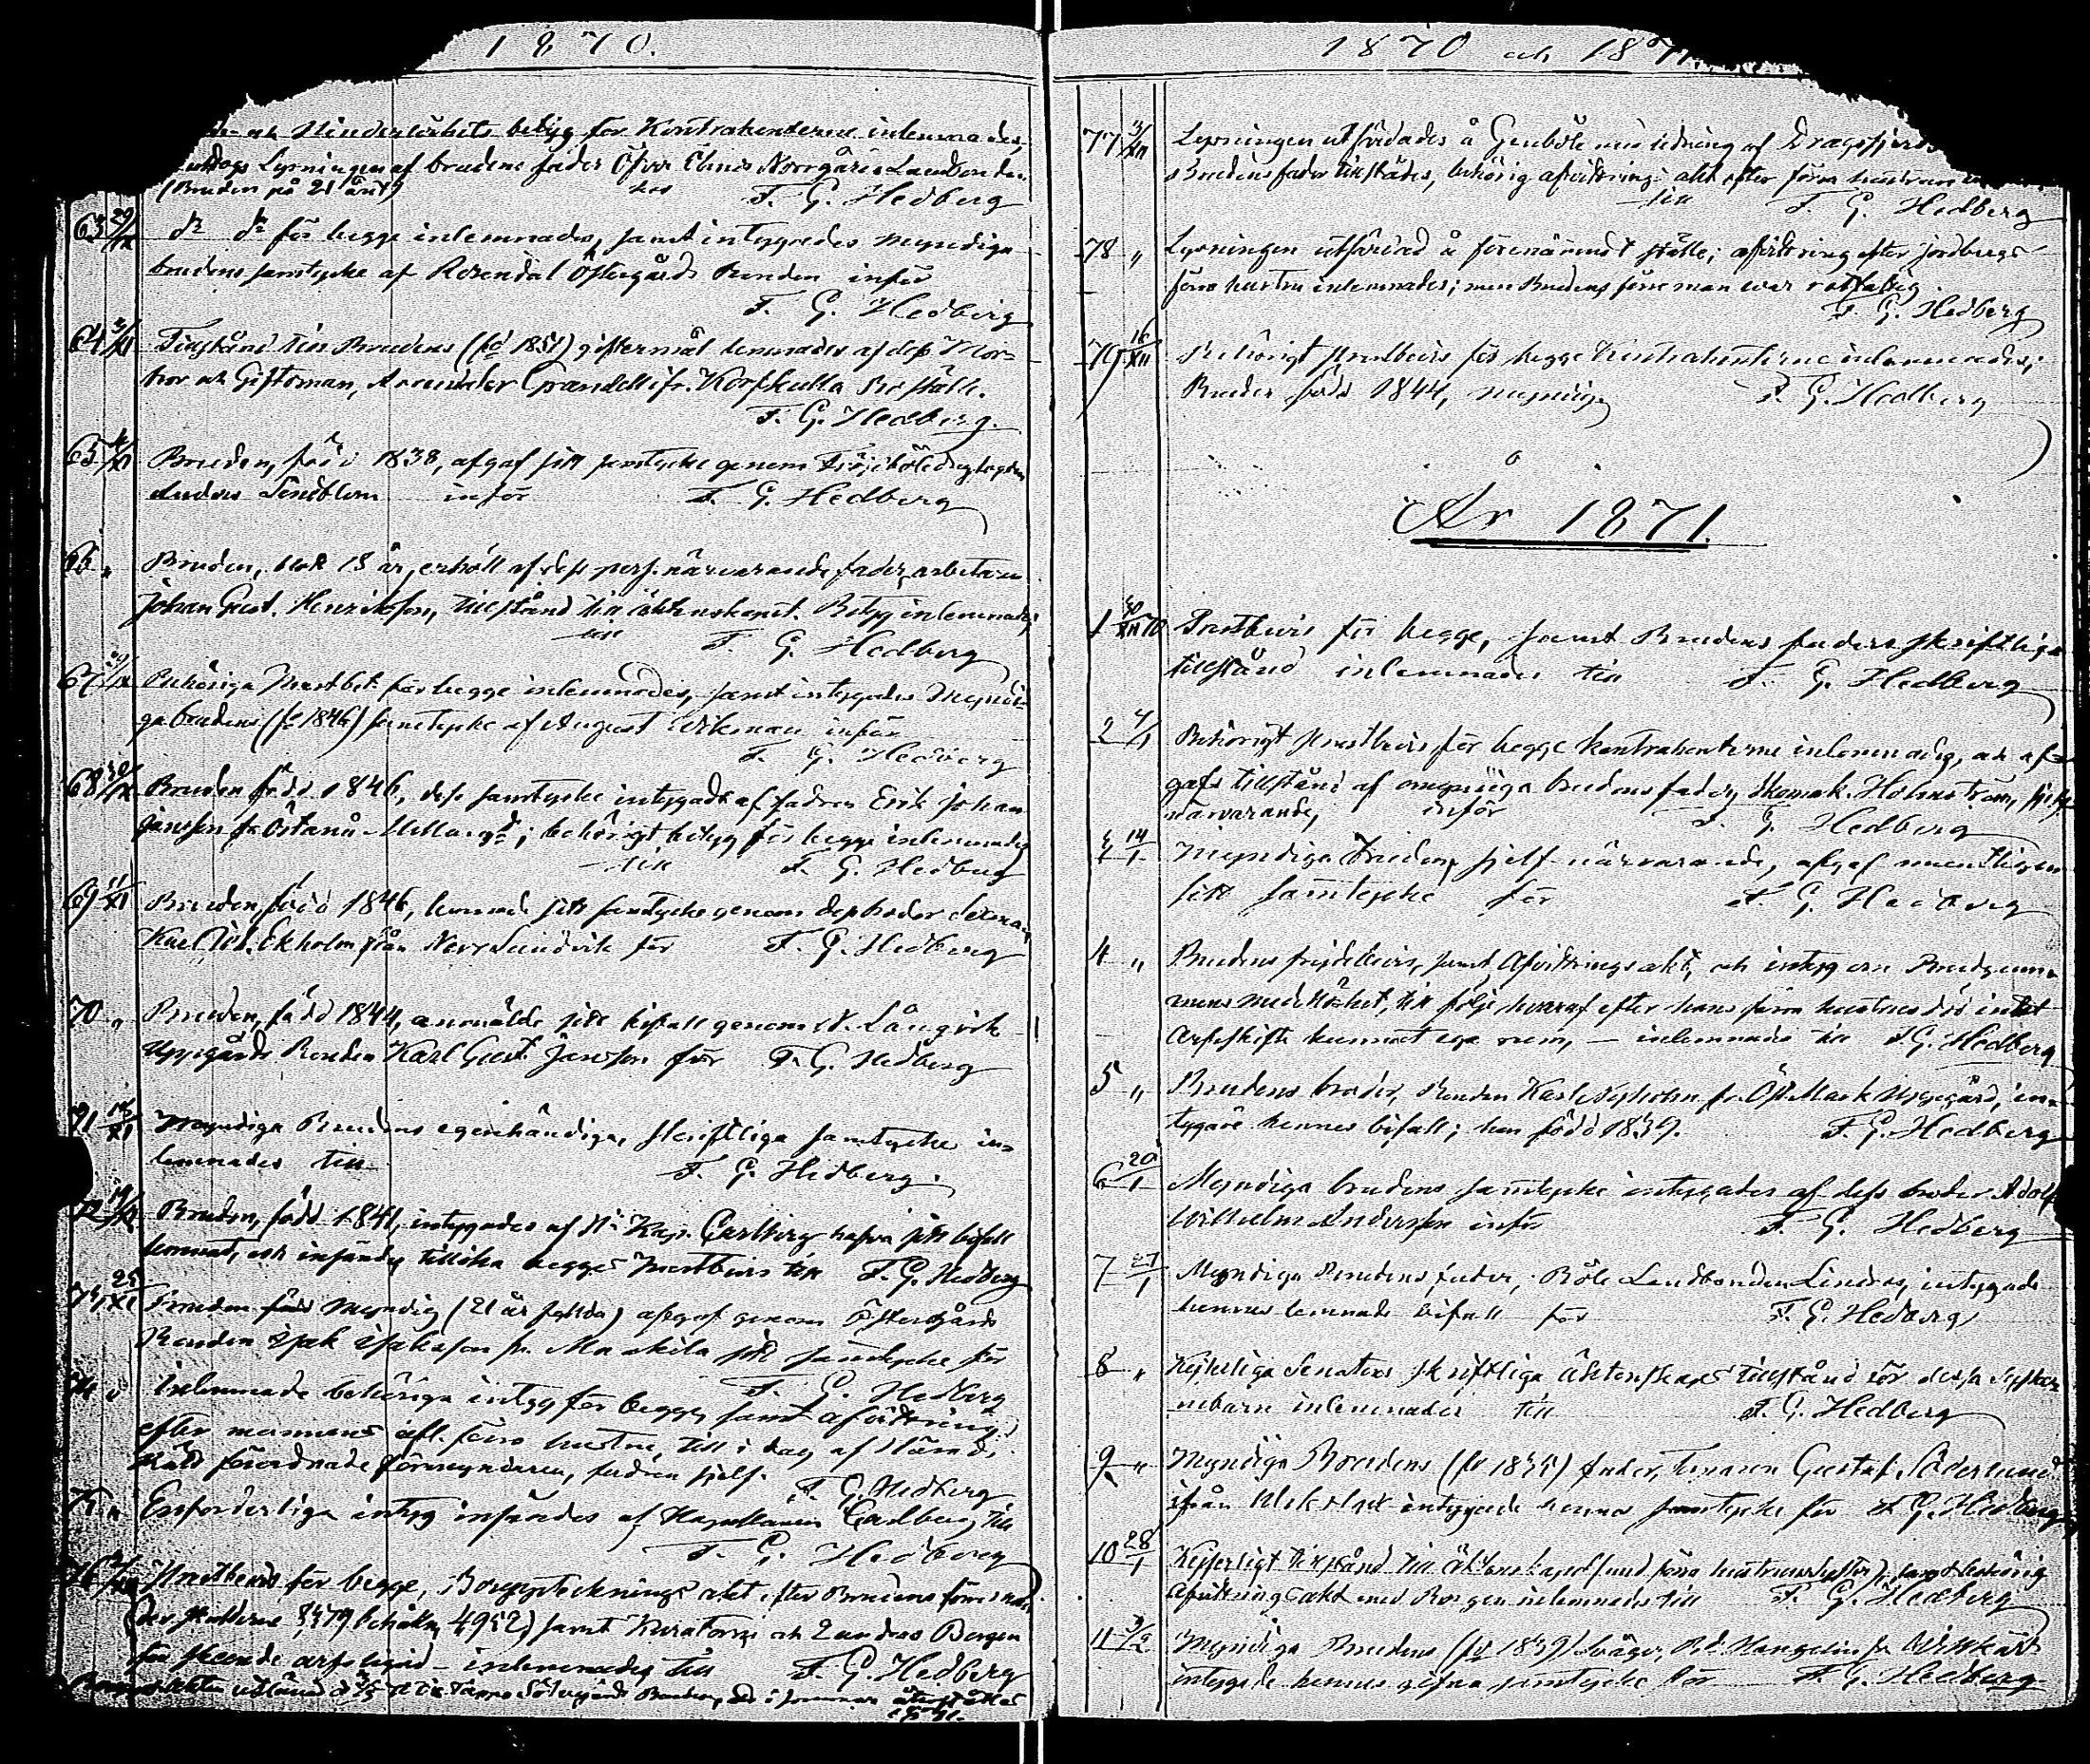 1870.
och Hinderlöshets betyg för Kontrahenterna inlemnades,
Lysningen af brudens fader Öfver Ölmos Norrgårds Landbonden
(Bruden på 21 året) hos F. G. Hedberg
63 29/IX do do för begge inlemnades, samt intygades myndiga
brudens samtycke af Rosendal Östergårds Bonden inför
F. G. Hedberg
64 3/XI Tillstånd till Brudens (född 1851) giftermål lemnades af dess Mor-
bror och Giftoman, Arrendator Grandell ifr. Korskulla Boställe.
F. G. Hedberg.
65 Bruden, född 1838, afgaf sitt samtycke genom
Anders Lindblom inför F. G. Hedberg
66 " Bruden, blott 18 år, erhöll af dess pers. närvarande fader, arbetaren
Johan Gust. Henriksson, tillstånd till äktenskapet. Betyg inlemnades
till F. G. Hedberg
67 Behöriga Prestbet. för begge inlemnades, samt intygades Myndi-
ga brudens (fd 1846) samtycke af August Wikman inför
F. G. Hedberg
68 Bruden född 1846, dess samtycke intygadt af fadren Erik Johan
Jansson fr. Östanå Mellangd; behörigt betyg för begge inlemnades
till F. G. Hedberg
69 11/XI Bruden, född 1846, lemnade sitt samtycke genom dess broder
Karl Wil. Ekholm från Norr Sundvik för F. G. Hedberg
70 " Bruden, född 1844, anmälde sitt bifall genom N. Långvik
Uppgårds Bonden Karl Gust. Jansson för F. G. Hedberg
71 Myndiga Brudens egenhändiga, skriftliga samtycke in-
lemnades till F. G. Hedberg.
72 Bruden, född 1841, intygades af Hr Kap. Carlberg hafva sitt bifall
lemnat, och insändes tillika begges Prestbevis till F. G. Hedberg
25/XI Bruden myndig (21 år fyllda) afgaf genom Östergårds
Bonden Isak Isaksson fr. Maskila sitt samtycke för
F. G. Hedberg
74 " Inlemnade behöriga intyg för begge, samt afvittring
efter mannens afl. förra hustru, till i dag af Härads
Rätt förordnade förmyndaren, fadren sjelf. F. G. Hedberg
75 " Erforderliga intyg insändes af Kapellanen Carlberg till
F. G. Hedberg
76 Prestbevis för begge, Bouppteckningsakt efter Brudens förra man
samt Kuratorns och 2 andras Borgen
för skeende arfslegad inlemnades till F. G. Hedberg
1870 och 1871.
77 3/XII Lysningen utfärdades å Genböle med ledning af Dragsfjerds
Brudens fader tillstädes, behörig afvittrings akt efter förra hustrun
till F. G. Hedberg
78 " Lysningen utfärdad å förenämndt ställe; afvittring efter Jordbergs
förra hustru inlemnades; men Brudens förre man war rotfattig.
F. G. Hedberg
79 16/XII Behörigt prestbevis för begge Kontrahenterne inlemnades;
Bruden född 1844, myndig F. G. Hedberg
År 1871.
1 30/XII 70 Prestbevis för begge, samt Brudens faders skriftliga
tillstånd inlemnades till F. G. Hedberg
2 4/1 Behörigt prestbevis för begge kontrahenterne inlemnades, och af-
gafs tillstånd af omyndiga brudens fader, Skomak. Holmström, sjelf
närvarande, inför F. G. Hedberg
3 14/1 Myndiga bruden, sjelf närvarande, afgaf muntligen
sitt samtycke för F. G. Hedberg
4 " Brudens frejdebevis, samt Afvittringsakt, och intyg om Brudgum-
mens medellöshet, till följe hvaraf efter hans förra hustrus död intet
Arfsskifte kunnat ega rum, — inlemnades till F. G. Hedberg
5 " Brudens broder, Bonden Karl Nyholm fr. Öst. Mark Uppgård, in-
tygade hennes bifall; hon född 1839. F. G. Hedberg
6 20/1 Myndiga brudens samtycke intygades af dess broder Adolf
Wilhelm Andersson inför F. G. Hedberg
7 27/1 Myndiga Brudens fader, Böle Landbonden Lindros, intygade
hennes lemnade bifall för F. G. Hedberg
8 " Kejserliga Senatens skriftliga äktenskaps tillstånd för dessa syskon-
nebarn inlemnades till F. G. Hedberg
9 " Myndiga Brudens (fd 1835) fader, Gustaf Söderlund
ifrån intygade hennes samtycke för F. G. Hedberg
10 28/1 Kejserligt tillstånd till äktenskapet (med förra hustruns syster), samt behörig
Afvittringsakt med Borgen inlemnades till F. G. Hedberg
11 3/2 Myndiga Brudens (fd 1839) svåger,
intygade hennes gifna samtycke för F. G. Hedberg